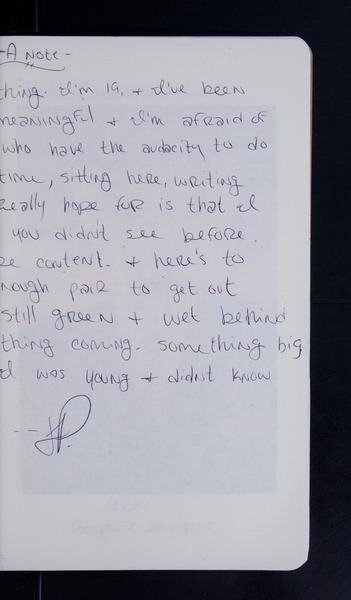 - A NOTE -
thing. I'm 19, + I've been
meaningful + I'm afraid of
who have the audacity to do
time, sitting here, writing
really hope for is that I
you didn't see before.
be content. + here's to
nough pair to get out
still green + wet behind
thing coming. something big
I was young + didn't know